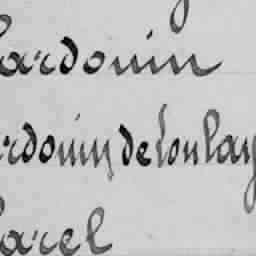 ardouin
rdouin de Conlay
arel